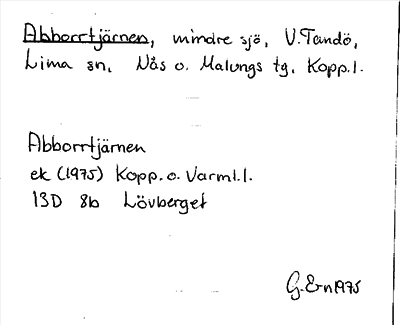 Abborrtjärnen, mindre sjö, V. Tandö,
Lima sn, Nås o. Malungs tg, Kopp.l.
Abborrtjärnen
ek (1975) Kopp. o. Värml.l.
13D 8b Lövberget
1975